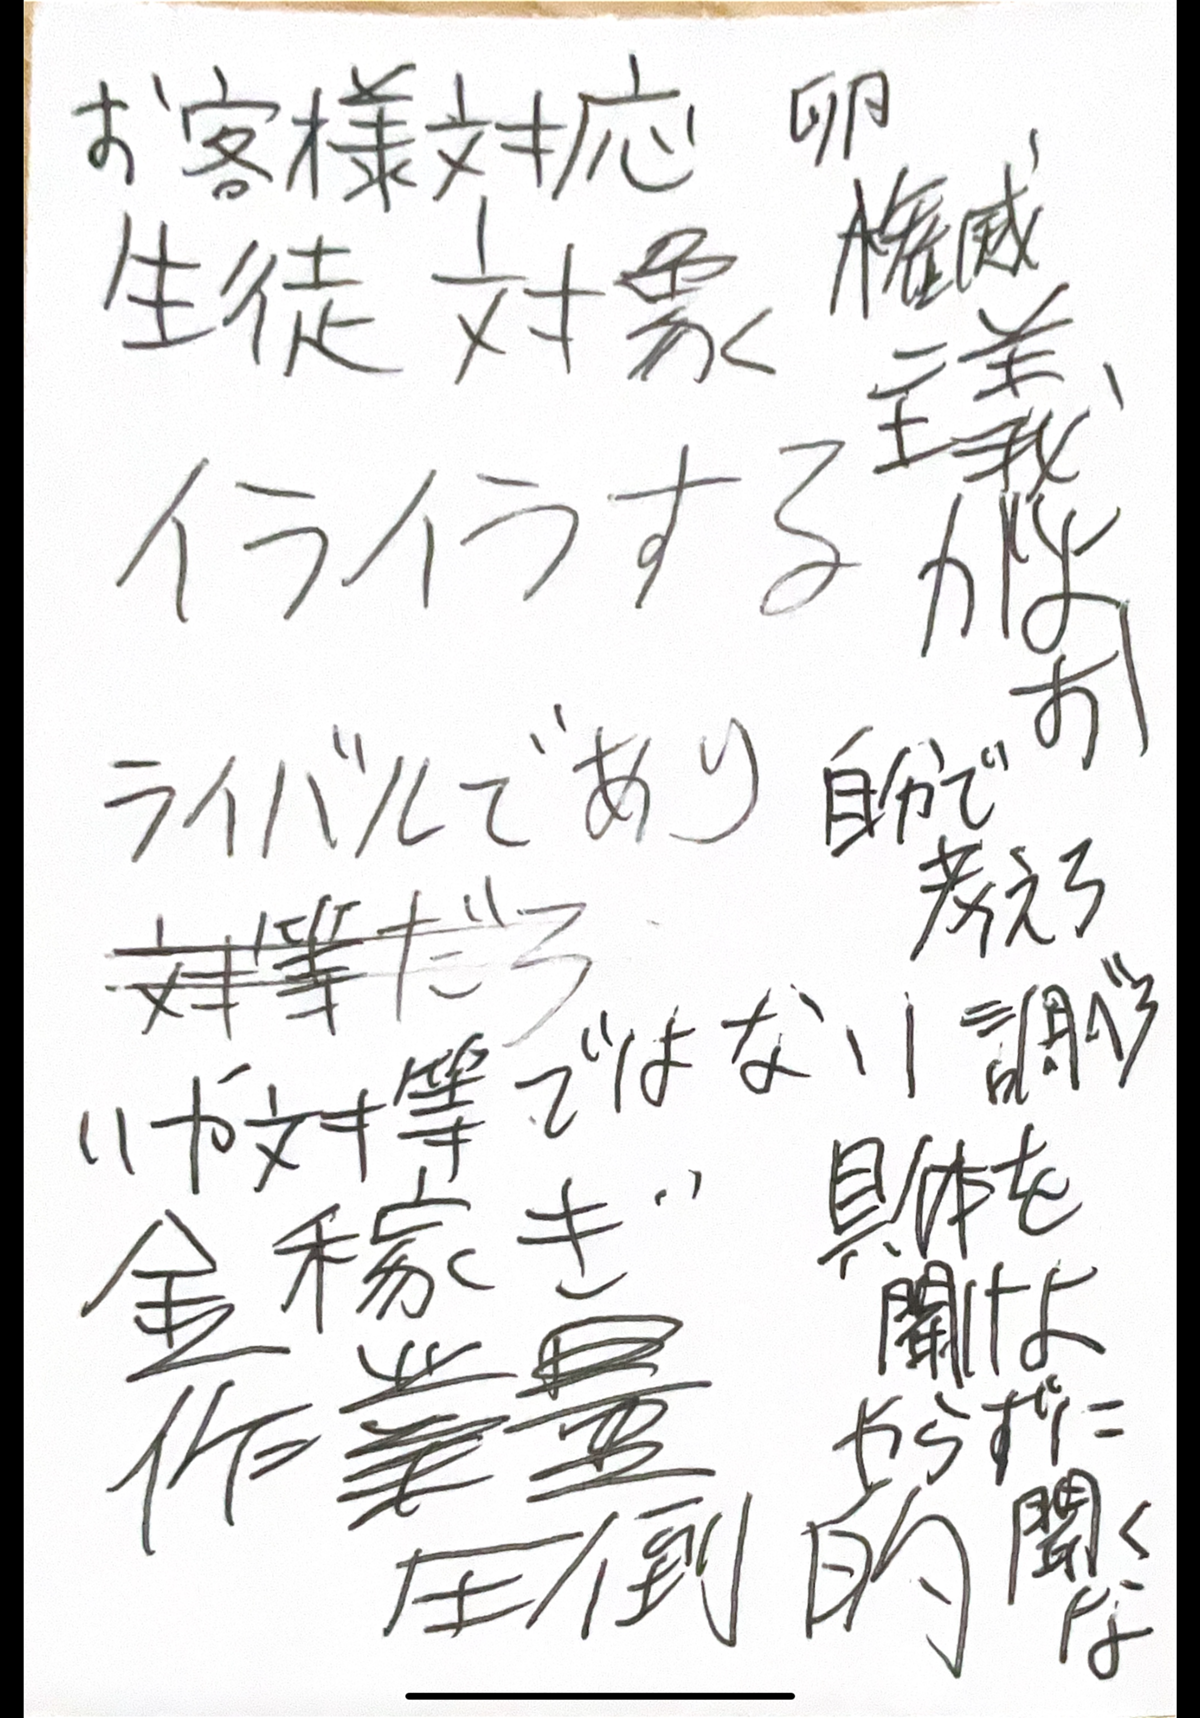 お客様対応
生徒対象
イライラする
ライバルであり
対等だろ
いや対等ではない
金稼ぎ
作業量
圧倒的
卵
権威
主義
がよ
おー
自分で
考えろ
調べろ
具体を
聞けよ
やらずに
聞くな